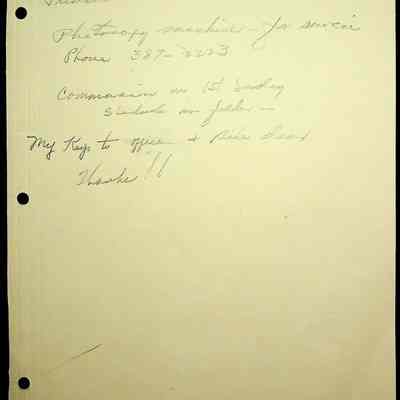 Photocopy machine - for service
Phone 387-2223
Communion on 1st Sunday
Schedule on folder -
My Keys to office & side door
Thanks!!